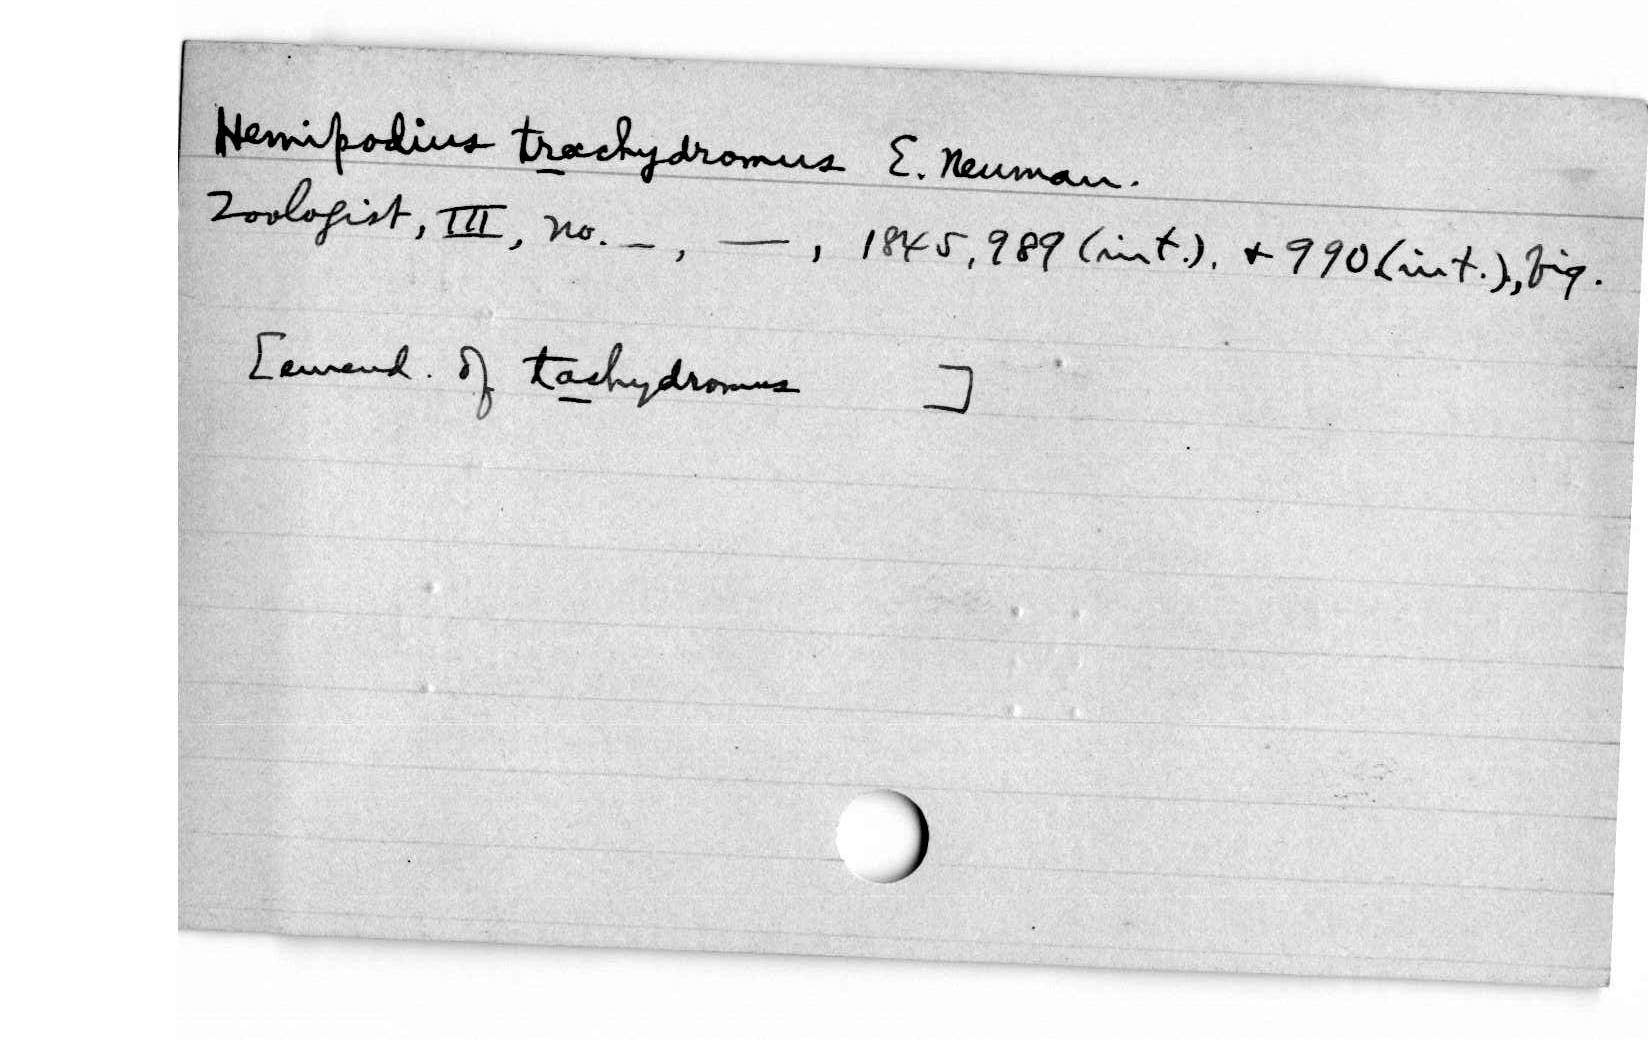 Hemipodius trachydromus E. Neuman.
Zoologist, III, no. _, —, 1845, 989 (int.). + 990 (int.), fig.
[emend. of tachydromus ]